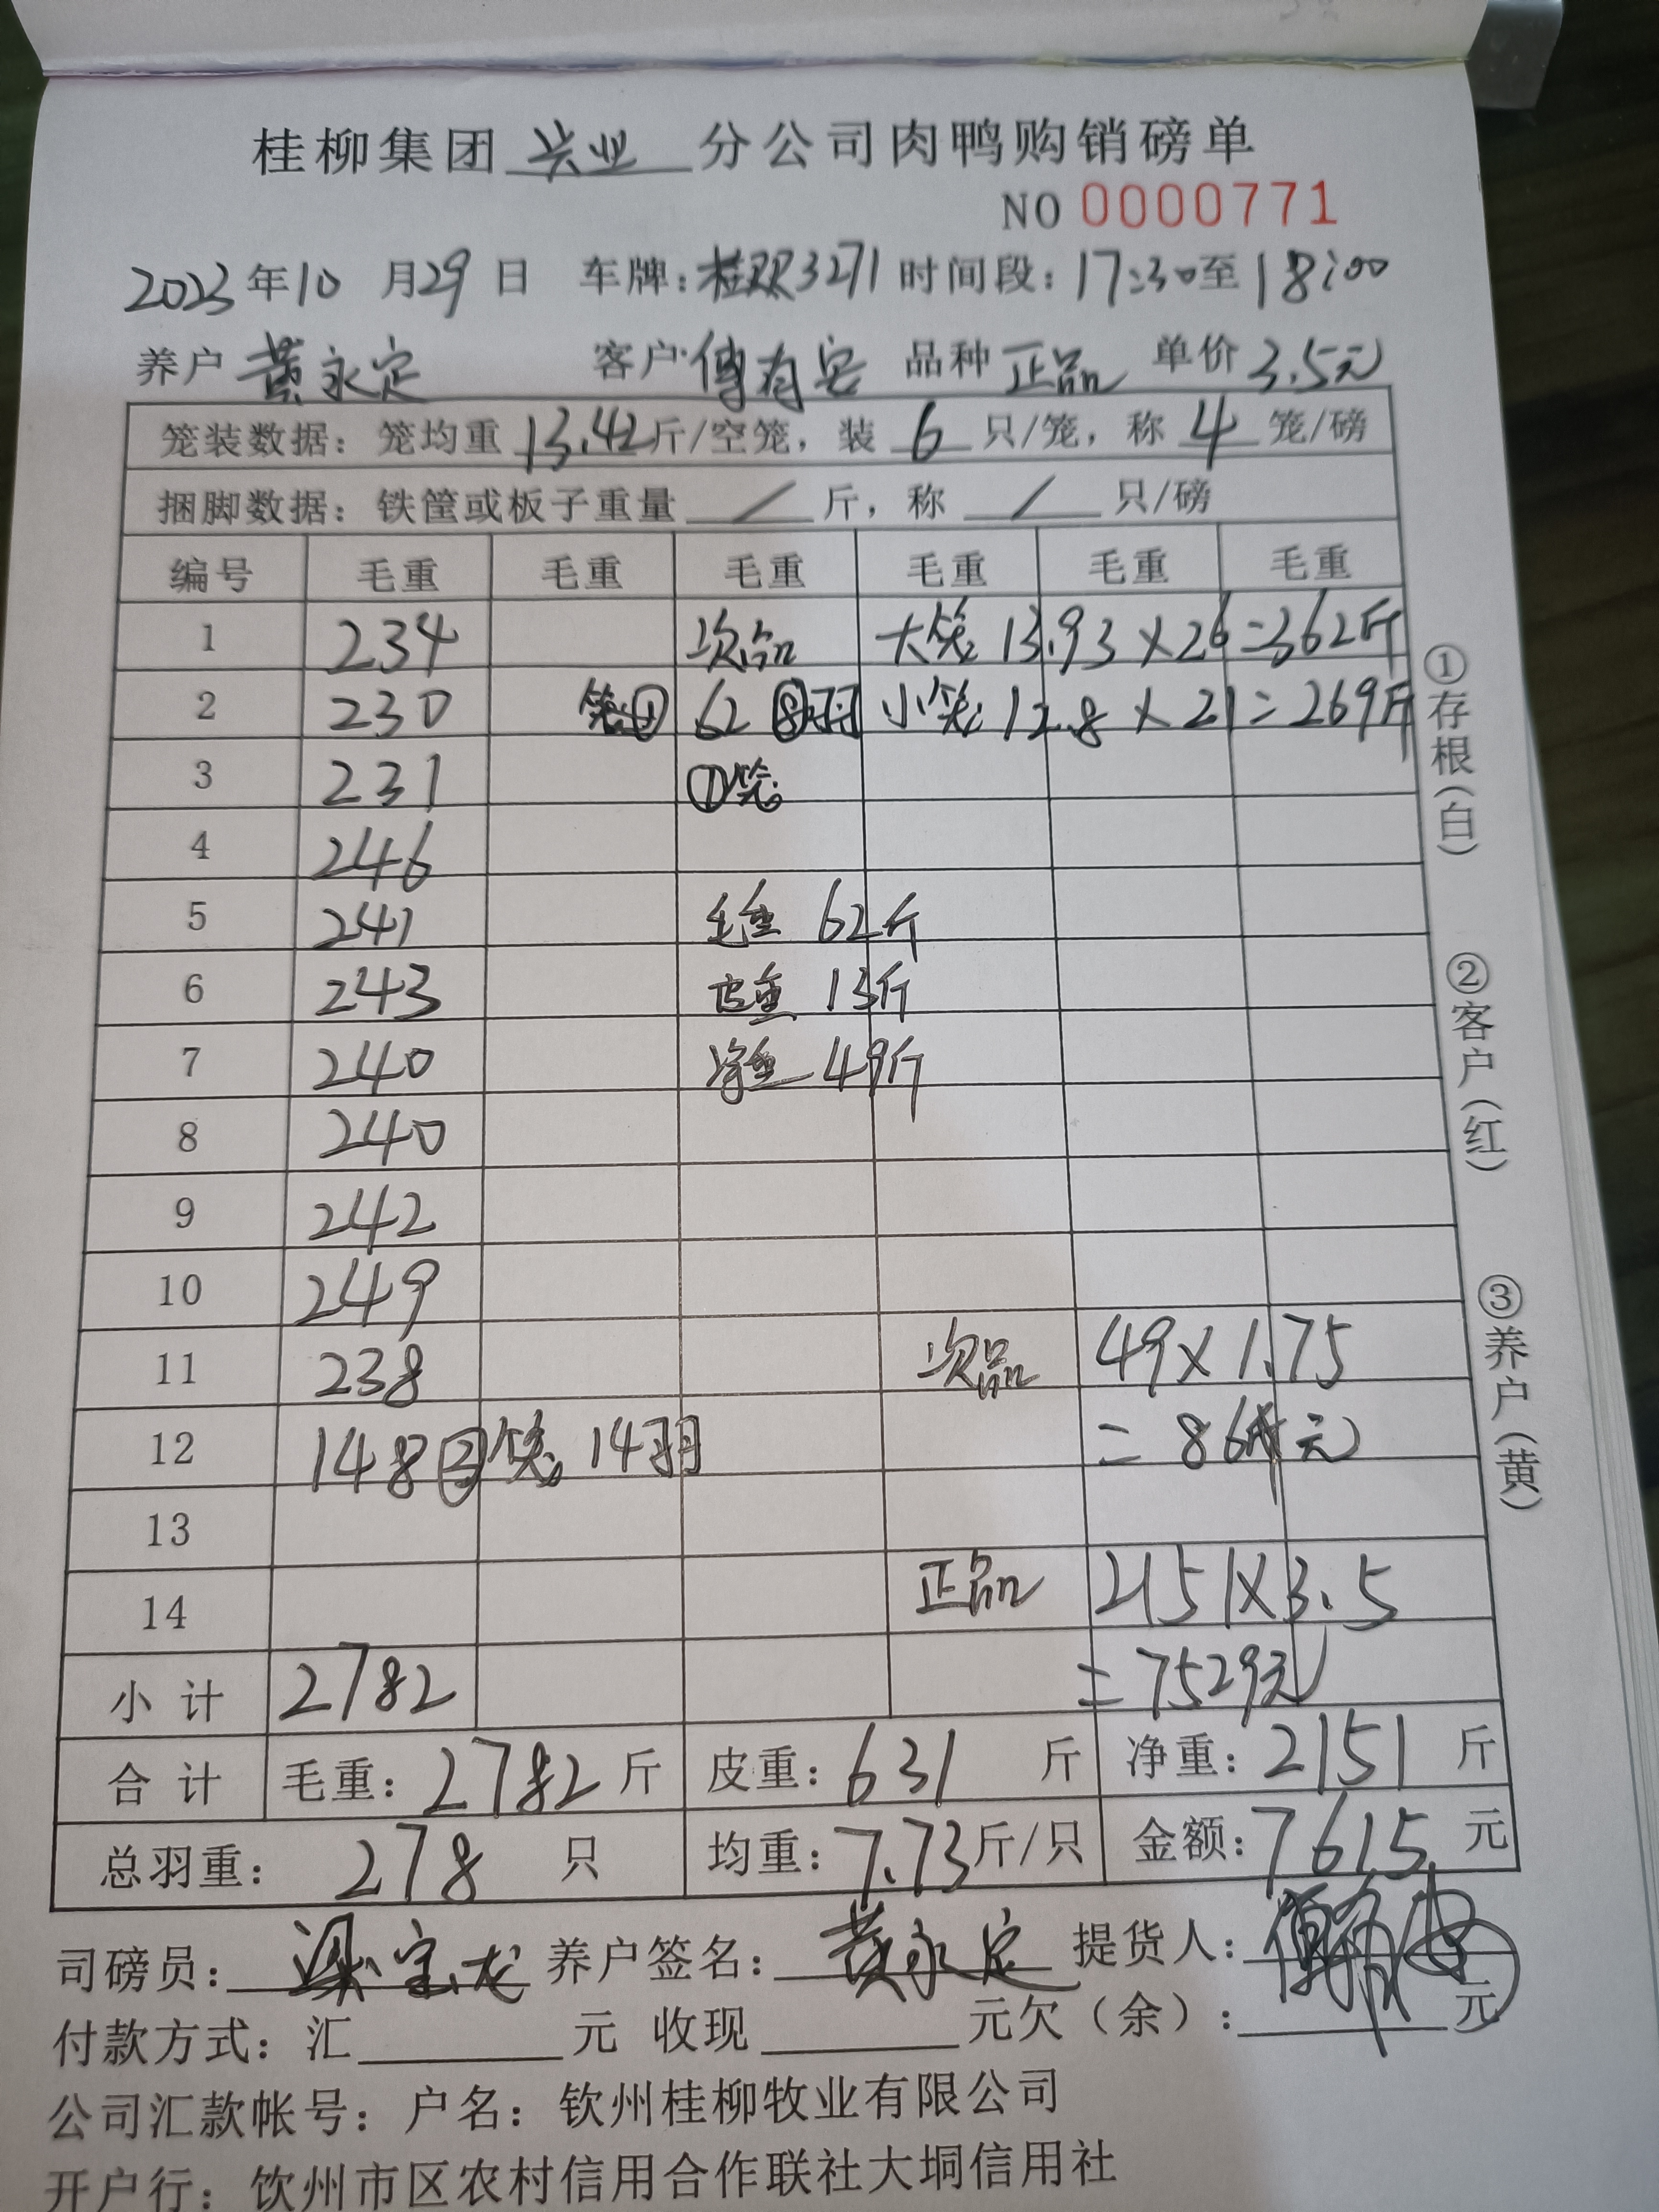 桂柳集团 兴业 分公司肉鸭购销磅单
NO 0000771
2023年10月29日 车牌:桂 3271 时间段:17:30至18:00
养户 黄永定 客户 傅有 品种 正品 单价 3.5元
笼装数据：笼均重 13.42斤/空笼，装 6 只/笼，称 4 笼/磅
捆脚数据：铁筐或板子重量 / 斤，称 / 只/磅
编号 毛重 毛重 毛重 毛重 毛重 毛重
1 234 次品 大笼 13.93×26=362斤
2 230 笼① 62 ⑧羽 小笼 12.8×21=269斤
3 231 ①笼
4 246
5 241 毛重 62斤
6 243 皮重 13斤
7 240 净重 49斤
8 240
9 242
10 249
11 238 次品 49×1.75
12 148 ③笼 14羽 =86元
13
14 正品 2151×3.5
小计 2782 =7529元
合计 毛重：2782斤 皮重：631斤 净重：2151斤
总羽重：278只 均重：7.73斤/只 金额：7615元
司磅员：梁宝龙 养户签名：黄永定 提货人：
付款方式：汇 元 收现 元欠（余）： 元
公司汇款帐号：户名：钦州桂柳牧业有限公司
开户行：钦州市区农村信用合作联社大垌信用社
①存根(白)
②客户(红)
③养户(黄)